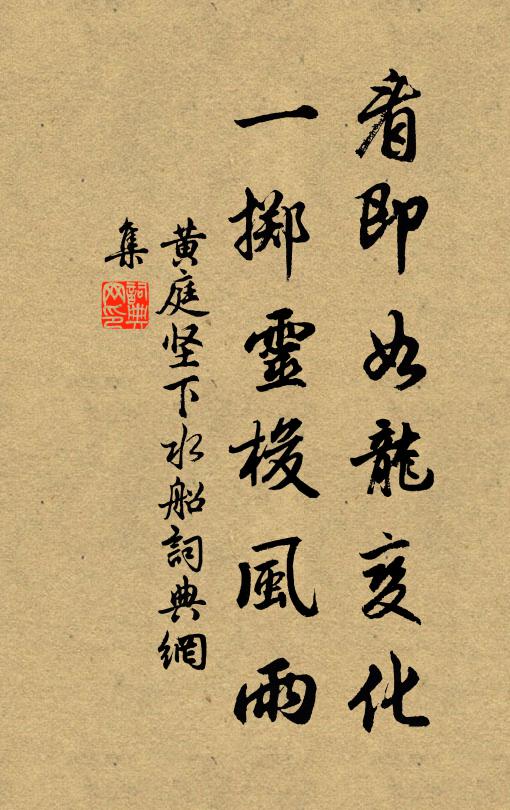 看即如龍变化
一擲靈梭風雨
黄庭坚下水船詞典網
集
詞典網印